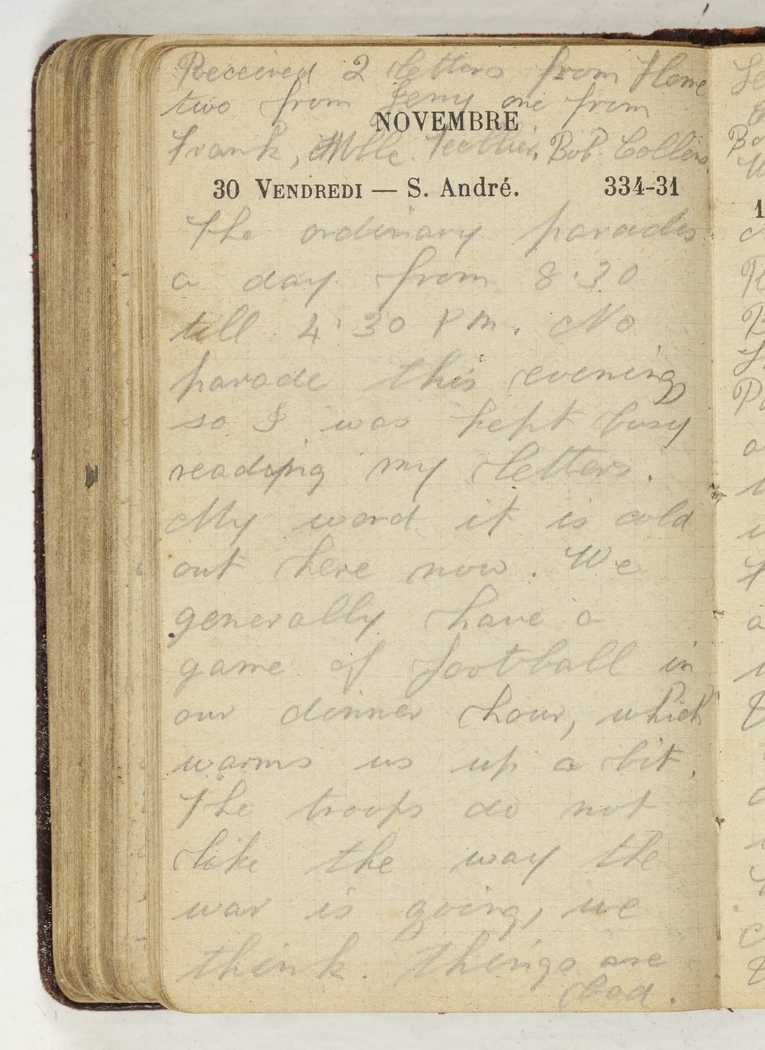 Received 2 letters from Home
two from Jerry one from
NOVEMBRE
Frank, Mlle. Bob Collins.
30 VENDREDI — S. André. 334-31
The ordinary parades
a day from 8.30
till 4.30 PM. No
parade this evening
so I was kept busy
reading my letters.
My word it is cold
out here now. We
generally have a
game of football in
our dinner hour, which
warms us up a bit.
The troops do not
like the way the
war is going, we
think. Things are
bad.